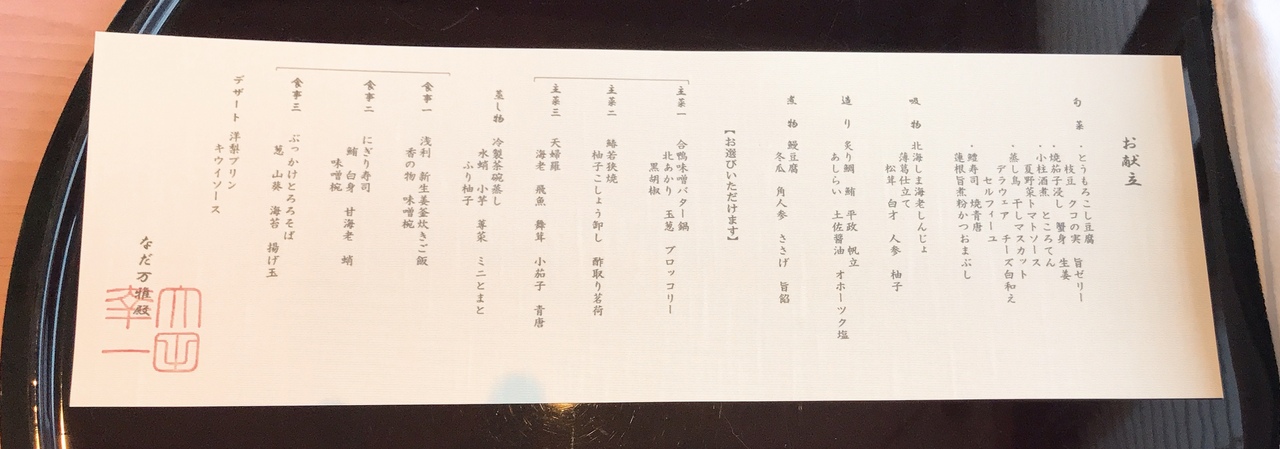 お献立
旬菜 ・とうもろこし豆腐
枝豆 クコの実 旨ゼリー
・焼茄子浸し 蟹身 生姜
・小柱酒煮 ところてん
夏野菜トマトソース
・蒸し鳥 干しマスカット
デラウェア チーズ白和え
セルフィーユ
・鱧寿司 焼青唐
蓮根旨煮粉かつおまぶし
吸物 北海しま海老しんじょ
薄葛仕立て
松茸 白才 人参 柚子
造り 炙り鯛 鮪 平政 帆立
あしらい 土佐醤油 オホーツク塩
煮物 鰻豆腐
冬瓜 角人参 ささげ 旨餡
【お選びいただけます】
主菜一 合鴨味噌バター鍋
北あかり 玉葱 ブロッコリー
黒胡椒
主菜二 鰆若狭焼
柚子こしょう卸し 酢取り茗荷
主菜三 天婦羅
海老 飛魚 舞茸 小茄子 青唐
蒸し物 冷製茶碗蒸し
水蛸 小芋 蓴菜 ミニとまと
ふり柚子
食事一 浅利 新生姜釜炊きご飯
香の物 味噌椀
食事二 にぎり寿司
鮪 白身 甘海老 蛸
味噌椀
食事三 ぶっかけとろろそば
葱 山葵 海苔 揚げ玉
デザート 洋梨プリン
キウイソース
なだ万雅殿